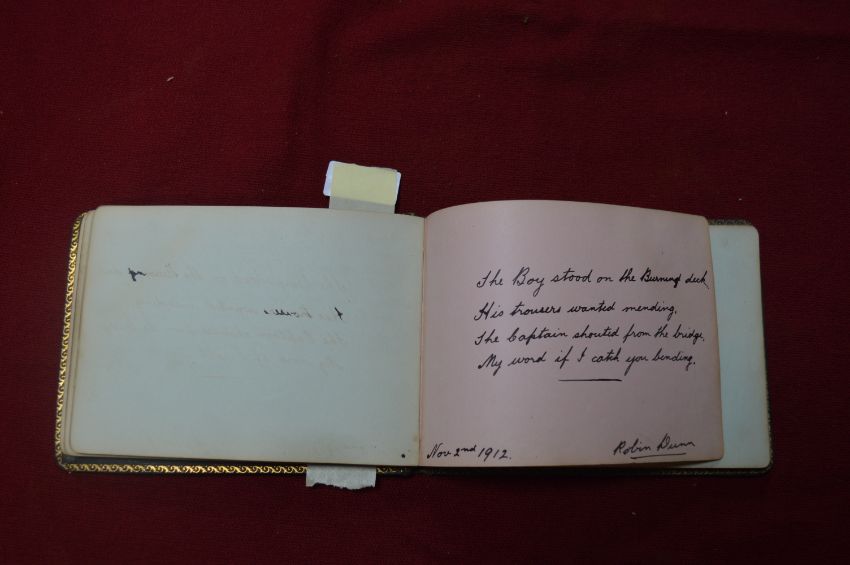 The Boy stood on the Burning deck.
His trousers wanted mending.
The Captain shouted from the bridge.
My word if I catch you bending.
Nov 2nd 1912.
Robin Dunn